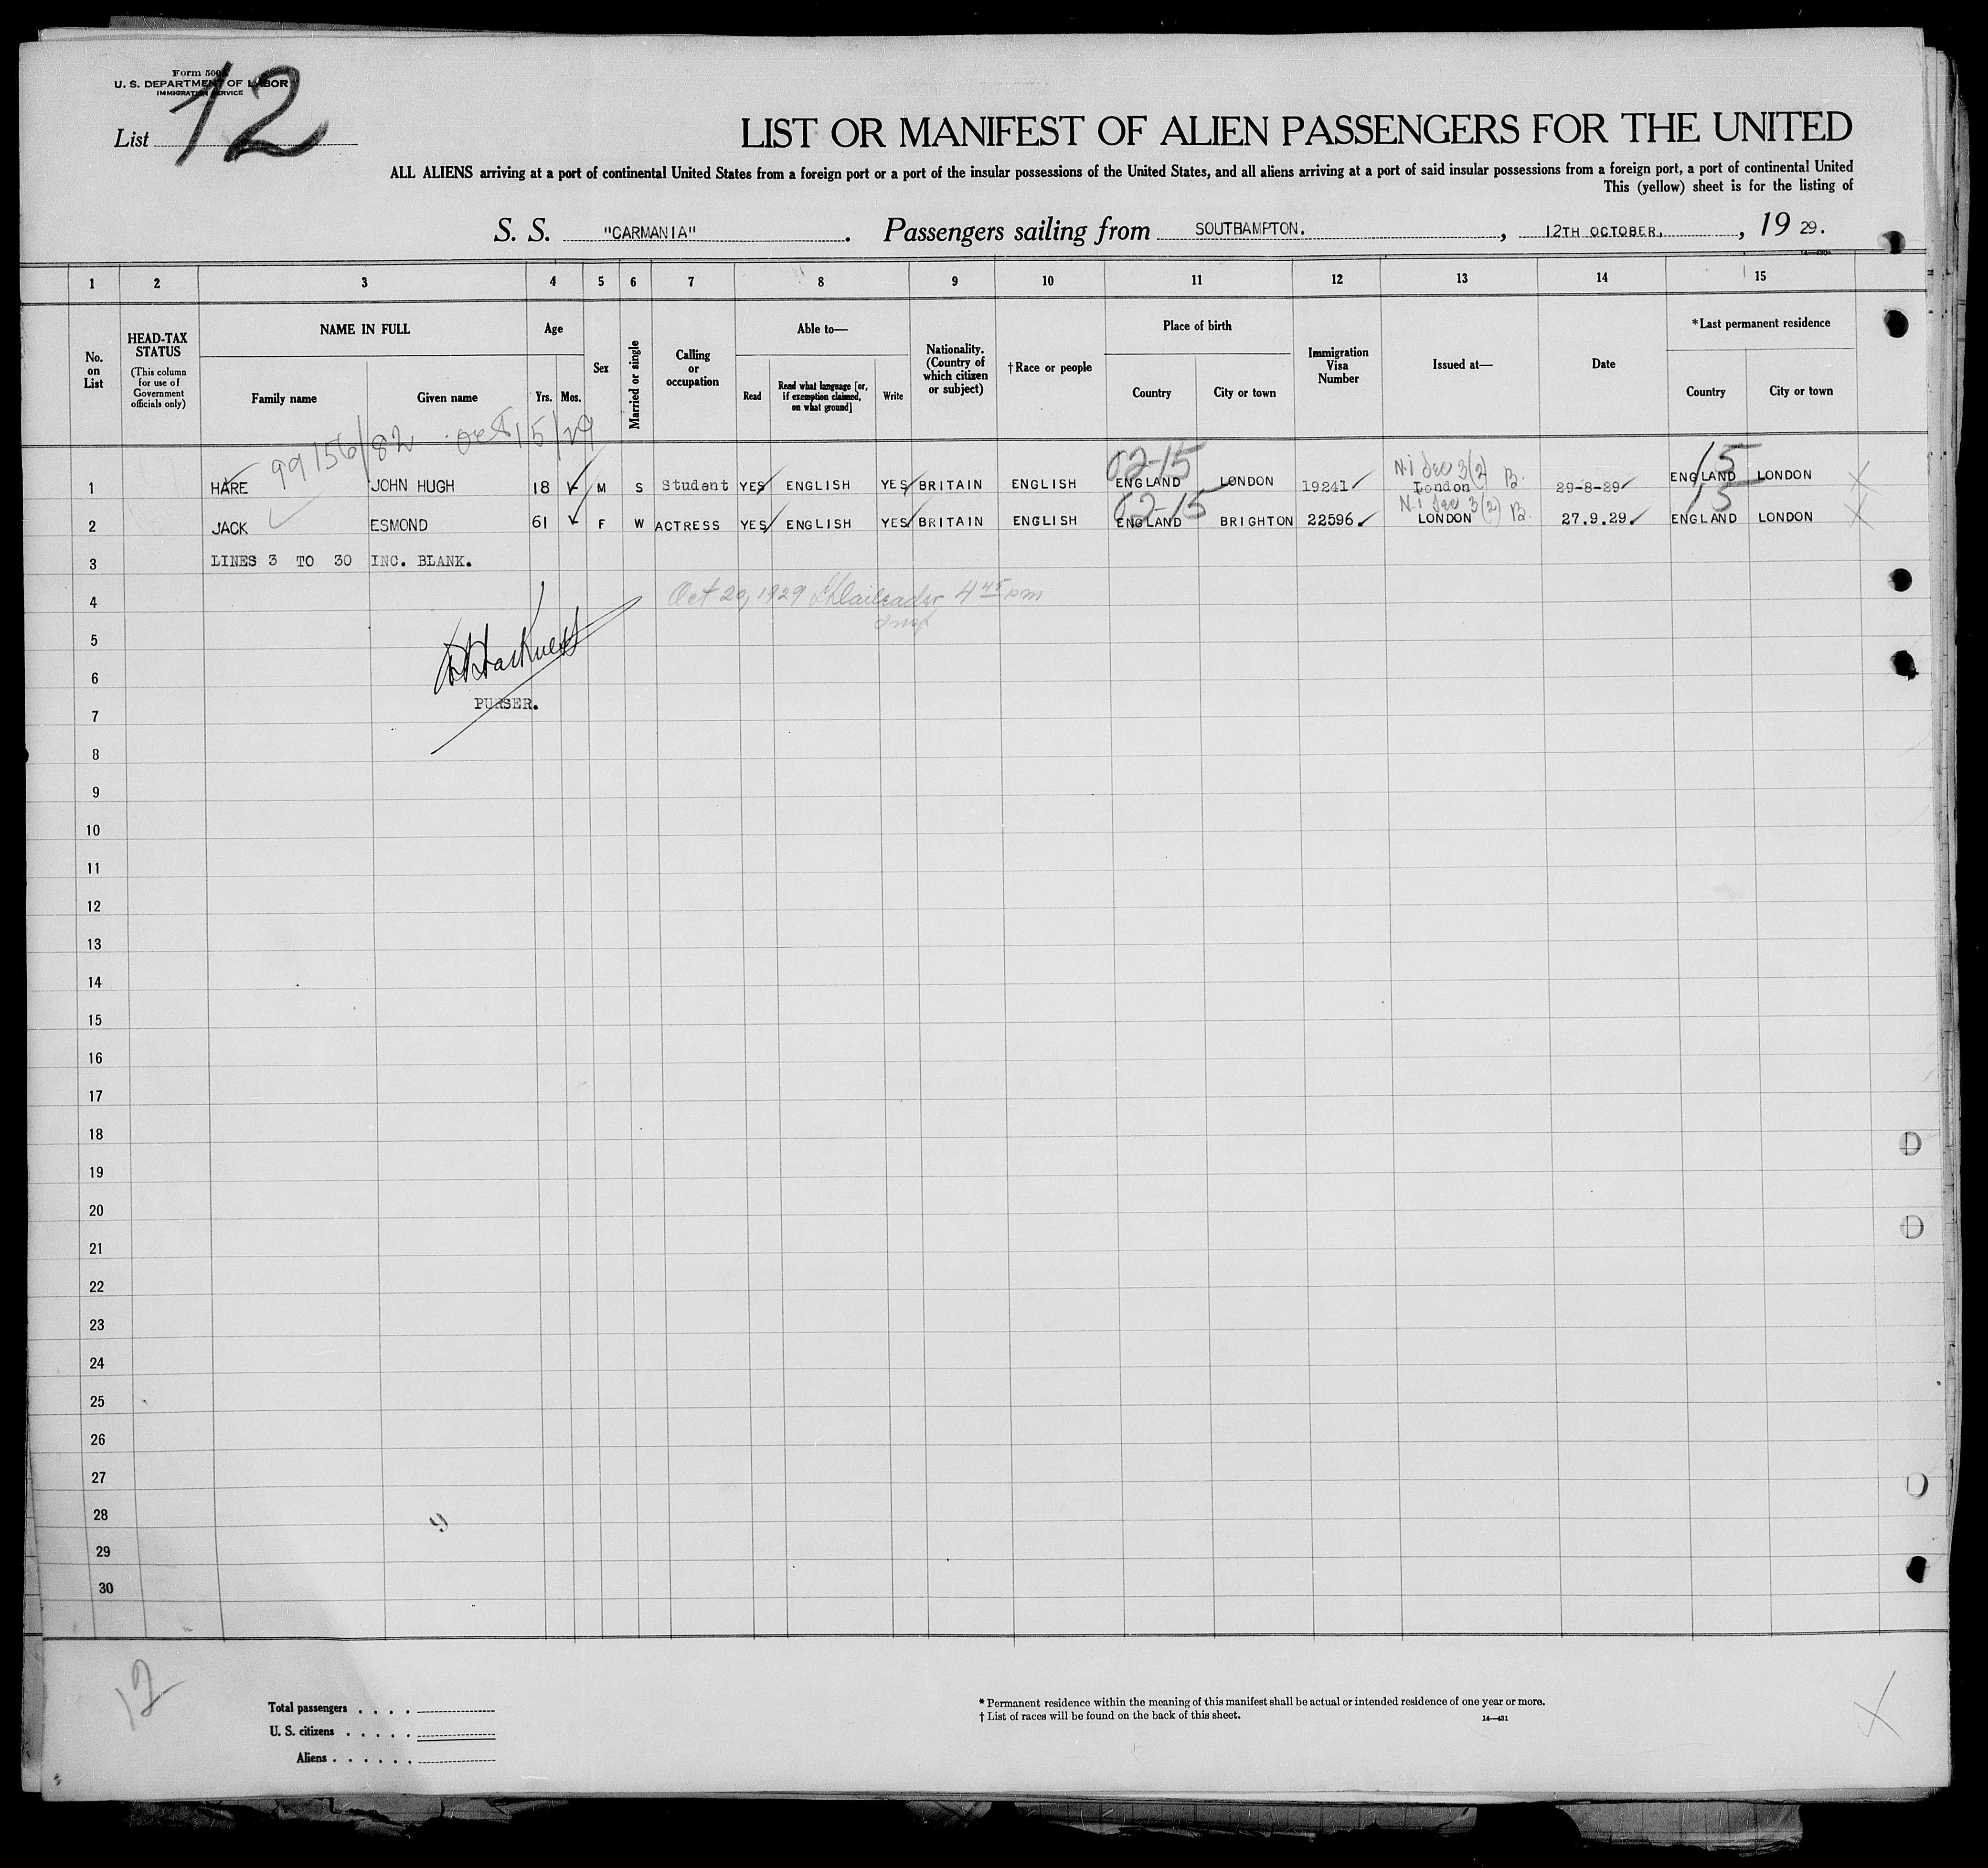 Form 500
U. S. DEPARTMENT OF LABOR
IMMIGRATION SERVICE
List 12
LIST OR MANIFEST OF ALIEN PASSENGERS FOR THE UNITED
ALL ALIENS arriving at a port of continental United States from a foreign port or a port of the insular possessions of the United States, and all aliens arriving at a port of said insular possessions from a foreign port, a port of continental United
This (yellow) sheet is for the listing of
S. S. "CARMANIA". Passengers sailing from SOUTBAMPTON. , 12TH OCTOBER, , 19 29.
1 2 3 4 5 6 7 8 9 10 11 12 13 14 15
No. on List
HEAD-TAX STATUS (This column for use of Government officials only)
NAME IN FULL
Family name Given name
Age
Yrs. Mos.
Sex
Married or single
Calling or occupation
Able to—
Read Read what language [or, if exemption claimed, on what ground] Write
Nationality. (Country of which citizen or subject)
†Race or people
Place of birth
Country City or town
Immigration Visa Number
Issued at—
Date
*Last permanent residence
Country City or town
99156/82 Oct 15/29
02-15 N.I Sec 3(2) B. 15
1 HARE JOHN HUGH 18 M S Student YES ENGLISH YES BRITAIN ENGLISH ENGLAND LONDON 19241 London 29-8-29 ENGLAND LONDON
02-15 N.I Sec 3(2) B. 15
2 JACK ESMOND 61 F W ACTRESS YES ENGLISH YES BRITAIN ENGLISH ENGLAND BRIGHTON 22596 LONDON 27.9.29 ENGLAND LONDON
3 LINES 3 TO 30 INC. BLANK.
4 Oct 20, 1929 4 45 pm
5
6
PURSER.
7
8
9
10
11
12
13
14
15
16
17
18
19
20
21
22
23
24
25
26
27
28
29
30
12
Total passengers . . . .
U. S. citizens . . . . .
Aliens . . . . . .
* Permanent residence within the meaning of this manifest shall be actual or intended residence of one year or more.
† List of races will be found on the back of this sheet.
14—431